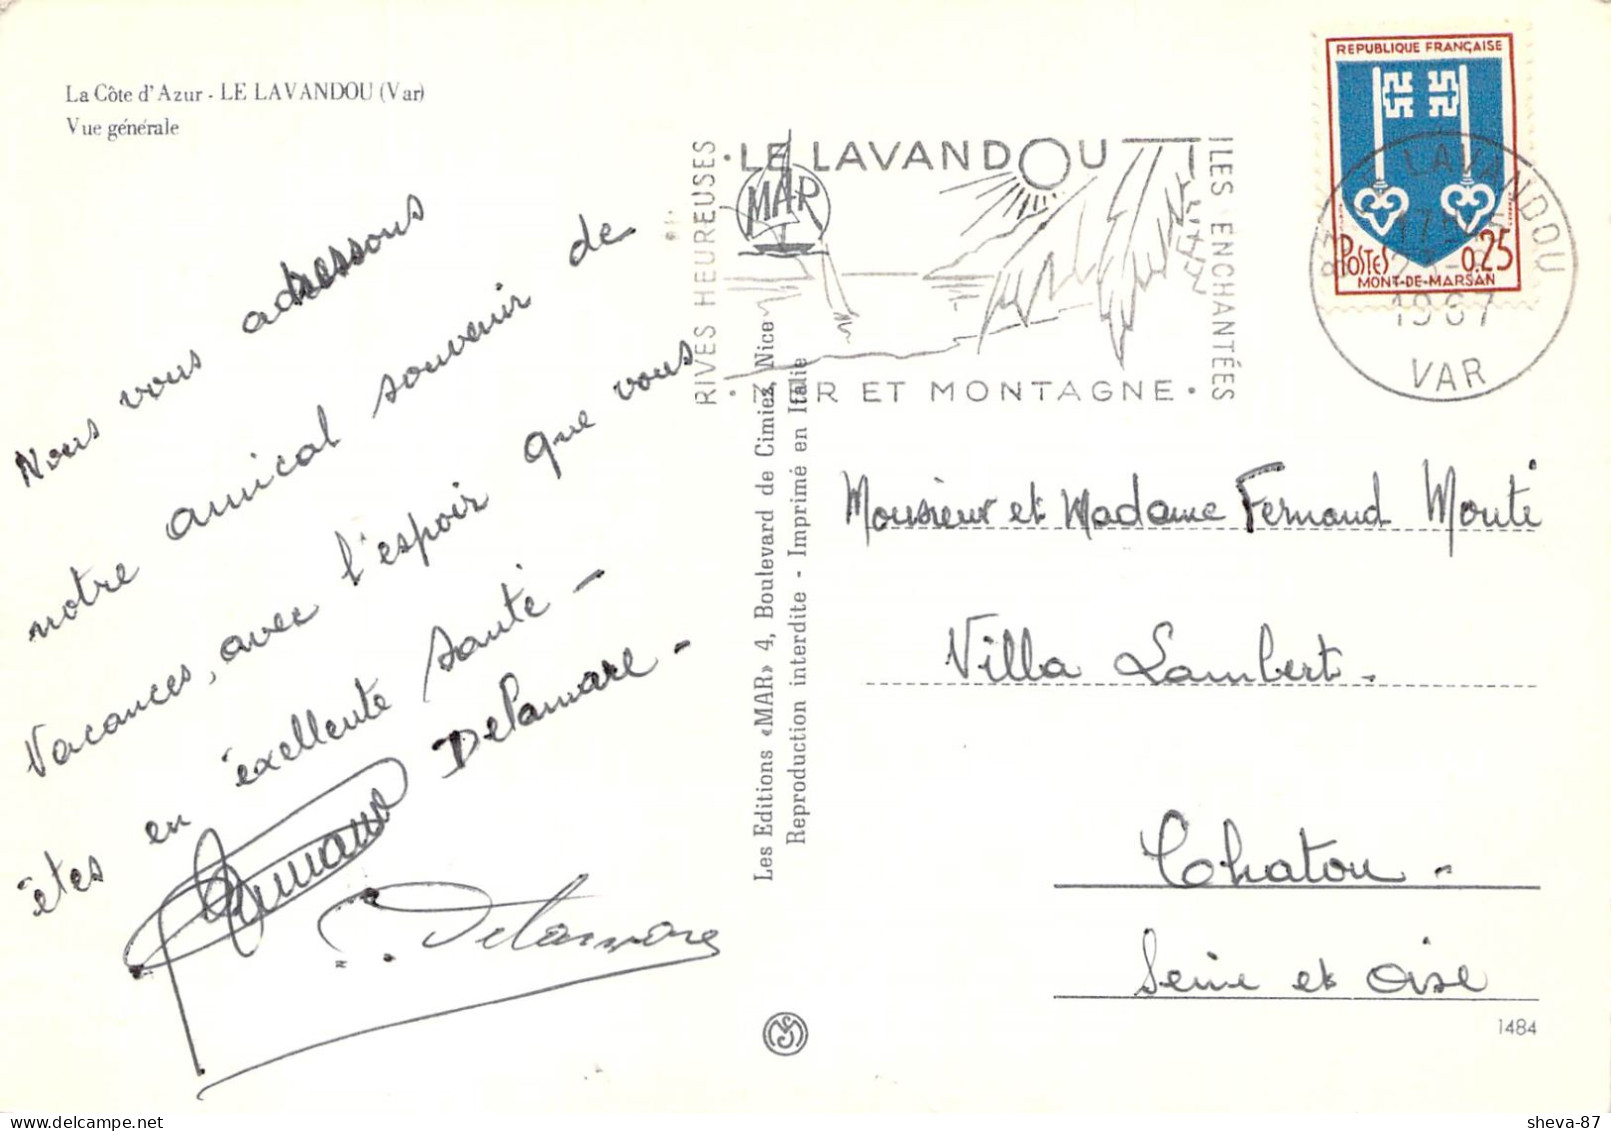 La Côte d'Azur - LE LAVANDOU (Var)
Vue générale
Nous vous adressons
notre amical souvenir de
vacances, avec l'espoir que vous
êtes en éxellente santé -
Delamare -
Armand
Delamare
Les Editions «MAR» 4, Boulevard de Cimiez, Nice
Reproduction interdite - Imprimé en Italie
MAR
RIVES HEUREUSES
· LE LAVANDOU
ILES ENCHANTÉES
· MER ET MONTAGNE ·
REPUBLIQUE FRANÇAISE
POSTES 0,25
MONT-DE-MARSAN
LE LAVANDOU
1967
VAR
Monsieur et Madame Fernand Monti
Villa Lambert -
Chatou -
Seine et Oise
1484
sheva-87